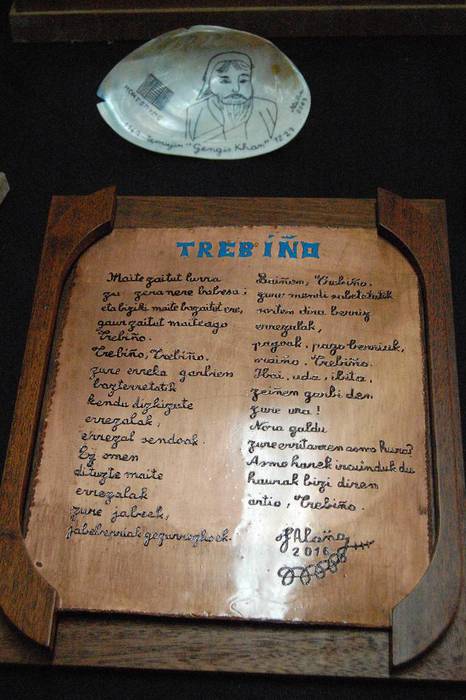 MONTEPYME
1162 Temujin "Gengis Khan" 1227
TREBIÑO
Maite zaitut lurra
zu zera nere babesa;
eta bizikí maite bazaitut ere,
gaur zaitut maiteago
Trebiño.
Trebiño, Trebiño.
zure erreka garbien
bazterretatik
kendu dizkizute
errezalak,
errezal sendoak.
Ez omen
dituzte maite
errezalak
zure jabeek,
jabeberriak gezurrezkoek.
Baiñan, Trebiño.
zure mendi sabeletatik
sortem dira berriz
errezalak,
pagoak, pago berriuek,
maiño. Trebiño.
Ibai, uda, ibita,
zeinen garbi den
zure ura!
Nora galdu
zure erritarren asmo hura?
Asmo hanek irauinduk du
haurak bizi diren
artio, Trebiño.
J. Alaña
2016